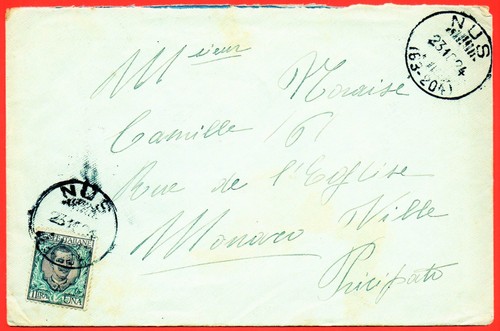 NUS
23 10 24
(63-204)
M sieur
Moraise
Camille
Rue de l'Eglise
Monaco Ville
Pricipato
NUS
23 10 24
E ITALIANE
1 LIRA UNA